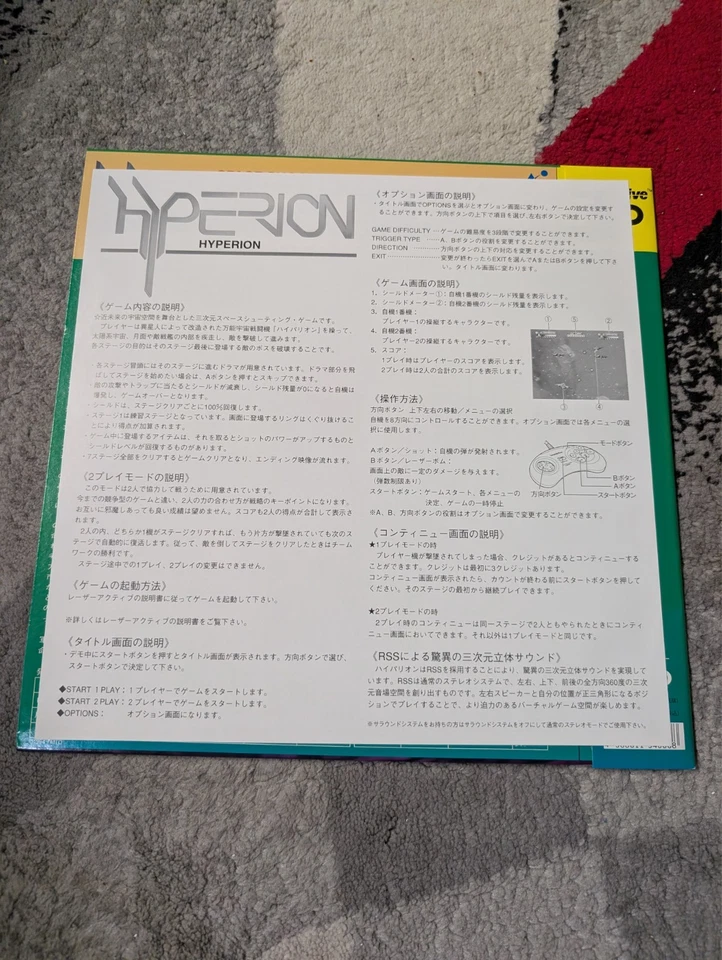 HYPERION
HYPERION
《ゲーム内容の説明》
公近未来の宇宙空間を舞台とした三次元スペースシューティング・ゲームです。
プレイヤーは異星人によって改造された万能宇宙戦闘機「ハイパリオン」を操って、
太陽系宇宙、月面や敵戦艦の内部を疾走し、敵を撃破して進みます。
各ステージの目的はそのステージ最後に登場する敵のボスを破壊することです。
・各ステージ冒頭にはそのステージに進むドラマが用意されています。ドラマ部分を飛
ばしてステージを始めたい場合は、Aボタンを押すとスキップできます。
・敵の攻撃やトラップに当たるとシールドが減衰し、シールド残量が0になると自機は
爆発し、ゲームオーバーとなります。
・シールドは、ステージクリアごとに100%回復します。
・ステージ1は練習ステージとなっています。画面に登場するリングはくぐり抜けるこ
とにより得点が加算されます。
・ゲーム中に登場するアイテムは、それを取るとショットのパワーがアップするものと
シールドレベルが回復するものがあります。
・7ステージ全部をクリアするとゲームクリアとなり、エンディング映像が流れます。
《2プレイモードの説明》
このモードは2人で協力して戦うために用意されています。
今までの競争型のゲームと違い、2人の力の合わせ方が戦略のキーポイントになります。
お互いに邪魔しあっても良い成績は望めません。スコアも2人の得点が合計して表示さ
れます。
2人の内、どちらか1機がステージクリアすれば、もう片方が撃墜されていても次のス
テージで自動的に復活します。従って、敵を倒してステージをクリアしたときはチーム
ワークの勝利です。
ステージ途中での1プレイ、2プレイの変更はできません。
《ゲームの起動方法》
レーザーアクティブの説明書に従ってゲームを起動して下さい。
※詳しくはレーザーアクティブの説明書をご覧下さい。
《タイトル画面の説明》
・デモ中にスタートボタンを押すとタイトル画面が表示されます。方向ボタンで選び、
スタートボタンで決定して下さい。
◆START 1 PLAY:1プレイヤーでゲームをスタートします。
◆START 2 PLAY:2プレイヤーでゲームをスタートします。
◆OPTIONS: オプション画面になります。
《オプション画面の説明》
・タイトル画面でOPTIONSを選ぶとオプション画面に変わり、ゲームの設定を変更す
ることができます。方向ボタンの上下で項目を選び、左右ボタンで決定して下さい。
GAME DIFFICULTY…ゲームの難易度を3段階で変更することができます。
TRIGGER TYPE ……A、Bボタンの役割を変更することができます。
DIRECTION …………方向ボタンの上下の対応を変更することができます。
EXIT …………………変更が終わったらEXITを選んでAまたはBボタンを押して下さ
い。タイトル画面に変わります。
《ゲーム画面の説明》
1. シールドメーター①:自機1番機のシールド残量を表示します。
2. シールドメーター②:自機2番機のシールド残量を表示します。
3. 自機1番機:
プレイヤー1の操縦するキャラクターです。
4. 自機2番機:
プレイヤー2の操縦するキャラクターです。
5. スコア:
1プレイ時はプレイヤーのスコアを表示します。
2プレイ時は2人の合計のスコアを表示します。
① ⑤ ②
③ ④
《操作方法》
方向ボタン 上下左右の移動／メニューの選択
自機を8方向にコントロールすることができます。オプション画面では各メニューの選
択に使用します。
Aボタン/ショット:自機の弾が発射されます。
Bボタン/レーザーボム:
画面上の敵に一定のダメージを与えます。
(弾数制限あり)
スタートボタン:ゲームスタート、各メニューの
決定、ゲームの一時停止
※A、B、方向ボタンの役割はオプション画面で変更することができます。
モードボタン
Bボタン
Aボタン
スタートボタン
方向ボタン
《コンティニュー画面の説明》
★1プレイモードの時
プレイヤー機が撃墜されてしまった場合、クレジットがあるとコンティニューする
ことができます。クレジットは最初に3クレジットあります。
コンティニュー画面が表示されたら、カウントが終わる前にスタートボタンを押して
ください。そのステージの最初から継続プレイできます。
★2プレイモードの時
2プレイ時のコンティニューは同一ステージで2人ともやられたときにコンティ
ニュー画面においてできます。それ以外は1プレイモードと同じです。
《RSSによる驚異の三次元立体サウンド》
ハイパリオンはRSSを採用することにより、驚異の三次元立体サウンドを実現して
います。RSSは通常のステレオシステムで、左右、上下、前後の全方向360度の三次
元音場空間を創り出すものです。左右スピーカーと自分の位置が正三角形になるポジ
ションでプレイすることで、より迫力のあるバーチャルゲーム空間が楽しめます。
※サラウンドシステムをお持ちの方はサラウンドシステムをオフにして通常のステレオモードでご使用下さい。